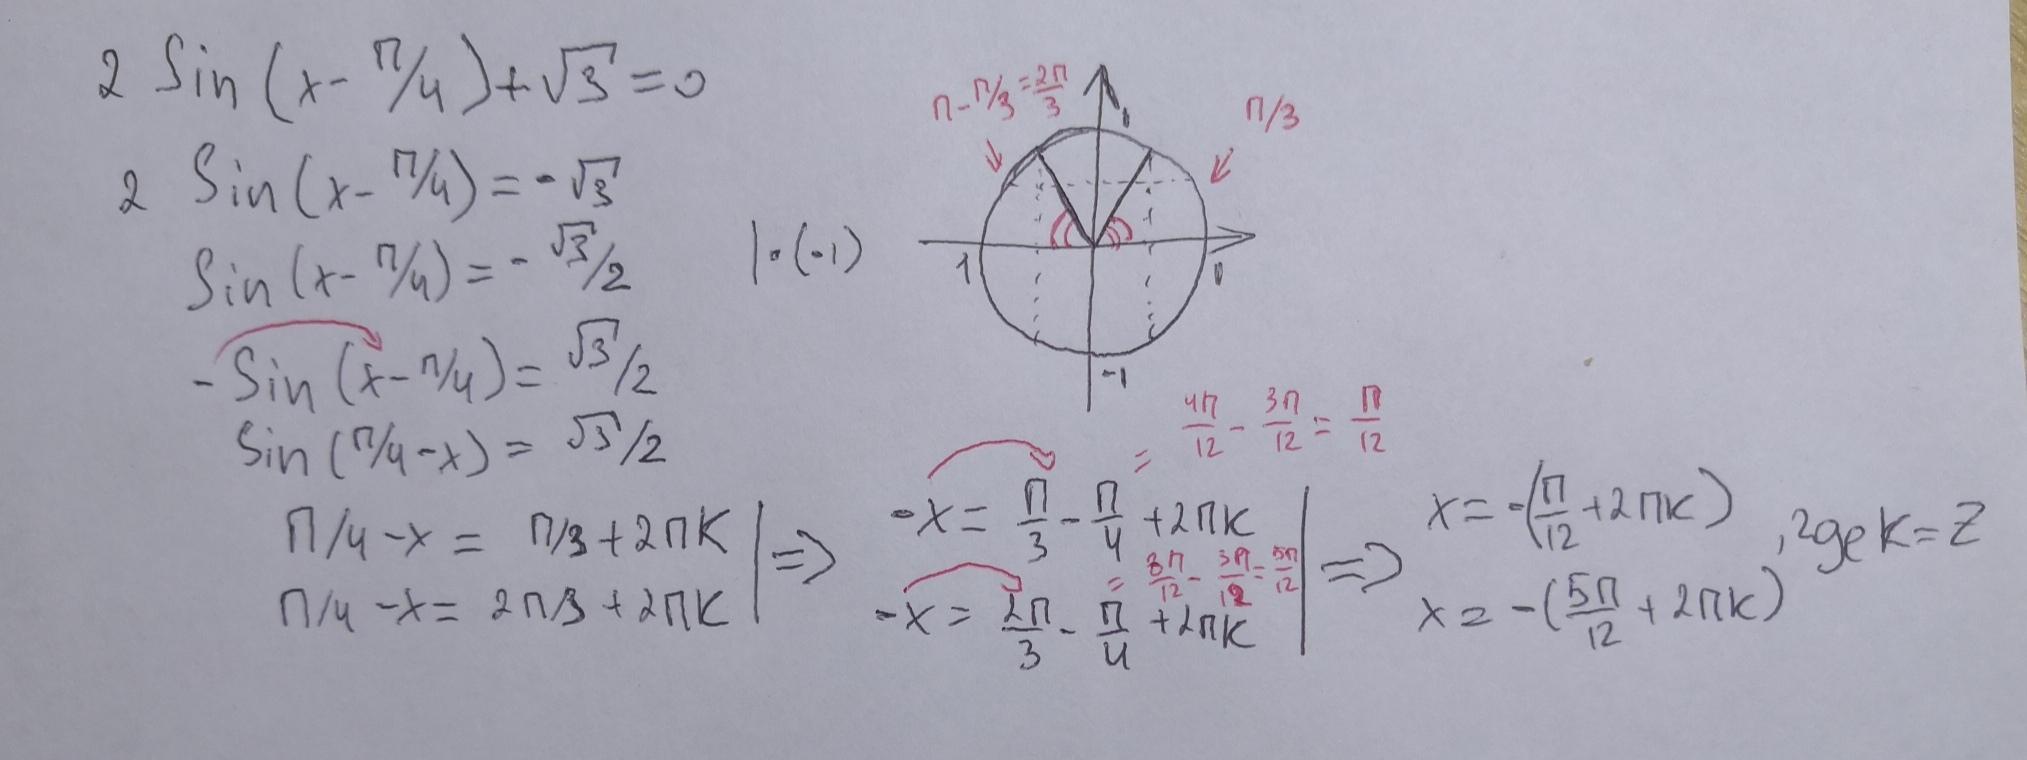 2 Sin (x - π/4) + √3 = 0
2 Sin (x - π/4) = - √3
Sin (x - π/4) = - √3/2 | · (-1)
- Sin (x - π/4) = √3/2
Sin (π/4 - x) = √3/2
π/4 - x = π/3 + 2πK
π/4 - x = 2π/3 + 2πK
=>
π - π/3 = 2π/3
π/3
1
1
0
-1
= 4π/12 - 3π/12 = π/12
-x = π/3 - π/4 + 2πK
= 8π/12 - 3π/12 = 5π/12
-x = 2π/3 - π/4 + 2πK
=>
x = -(π/12 + 2πK)
x = -(5π/12 + 2πK)
, где K = Z